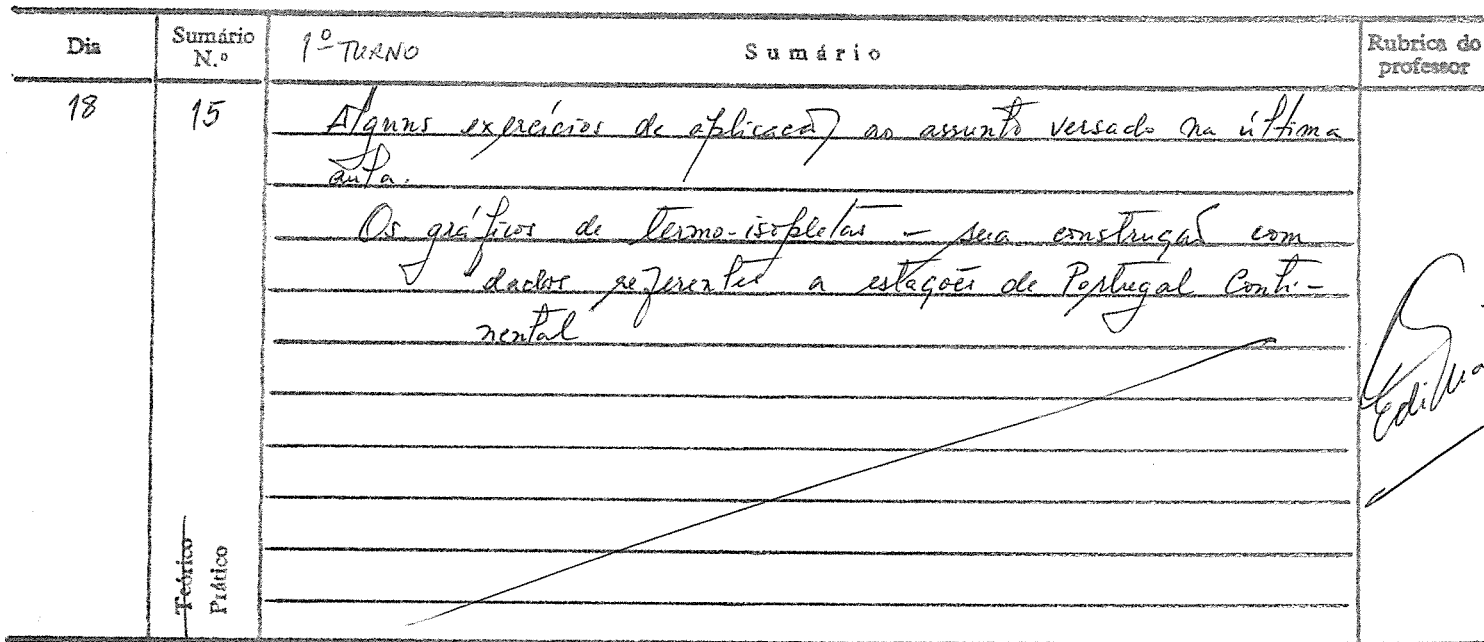 Dia
Sumário N.º
1º TURNO
Sumário
Rubrica do professor
18
15
Alguns exercícios de aplicação ao assunto versado na última
aula.
Os gráficos de termo-isopletas – sua construção com
dados referentes a estações de Portugal Conti-
nental
Teórico
Prático